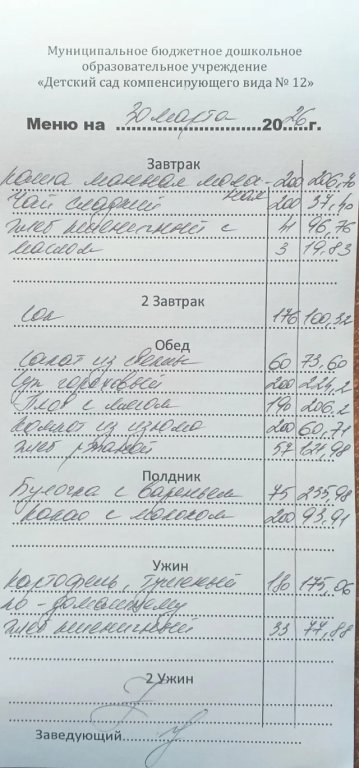 Муниципальное бюджетное дошкольное
образовательное учреждение
«Детский сад компенсирующего вида № 12»
Меню на 30 марта 2026 г.
Завтрак
Каша манная молоч- 200 206,76
ная
Чай сладкий 200 37,40
Хлеб пшеничный с 41 96,76
маслом 3 19,83
2 Завтрак
Сок 176 100,32
Обед
Салат из свеклы 60 73,60
Суп гороховый 200 224,2
Плов с мясом 190 206,2
Компот из изюма 200 60,71
Хлеб ржаной 57 121,98
Полдник
Булочка с вареньем 75 235,98
Какао с молоком 200 93,91
Ужин
Картофель, тушеный 180 175,06
по-домашнему
Хлеб пшеничный 33 77,88
2 Ужин
Заведующий